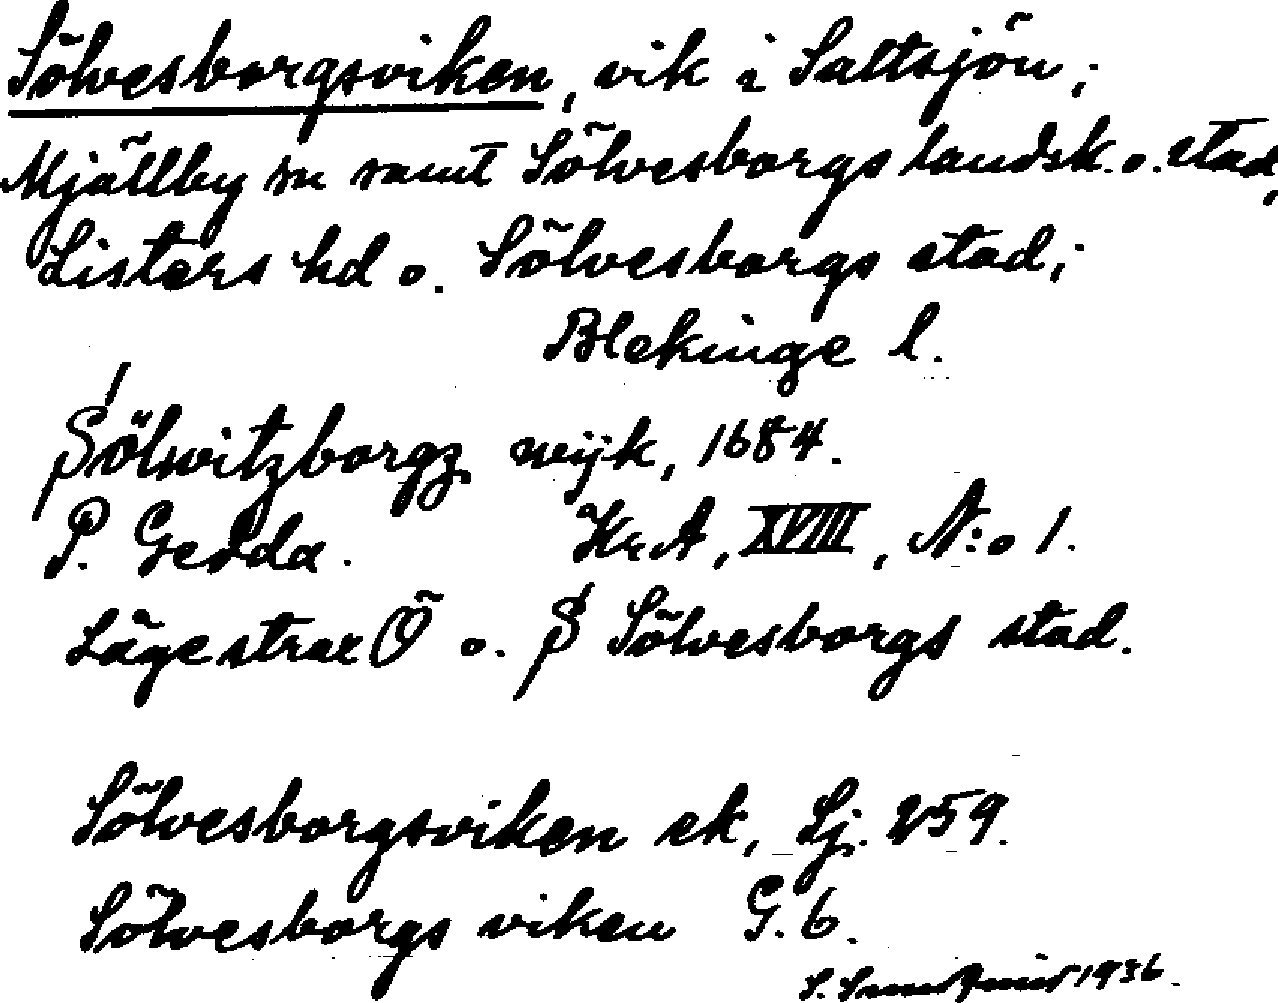 Sölvesborgsviken, vik i Saltsjön;
Mjällby sn samt Sölvesborgs landsk. o. stad,
Listers hd o. Sölvesborgs stad;
Blekinge l.
Sölwitzborgz wijk, 1684.
P. Gedda. Kr.A, XVIII, N:o 1.
Läge strax Ö o. S Sölvesborgs stad.
Sölvesborgsviken ek, Sj. 259.
Sölvesborgs viken G. 6.
S. 1936.